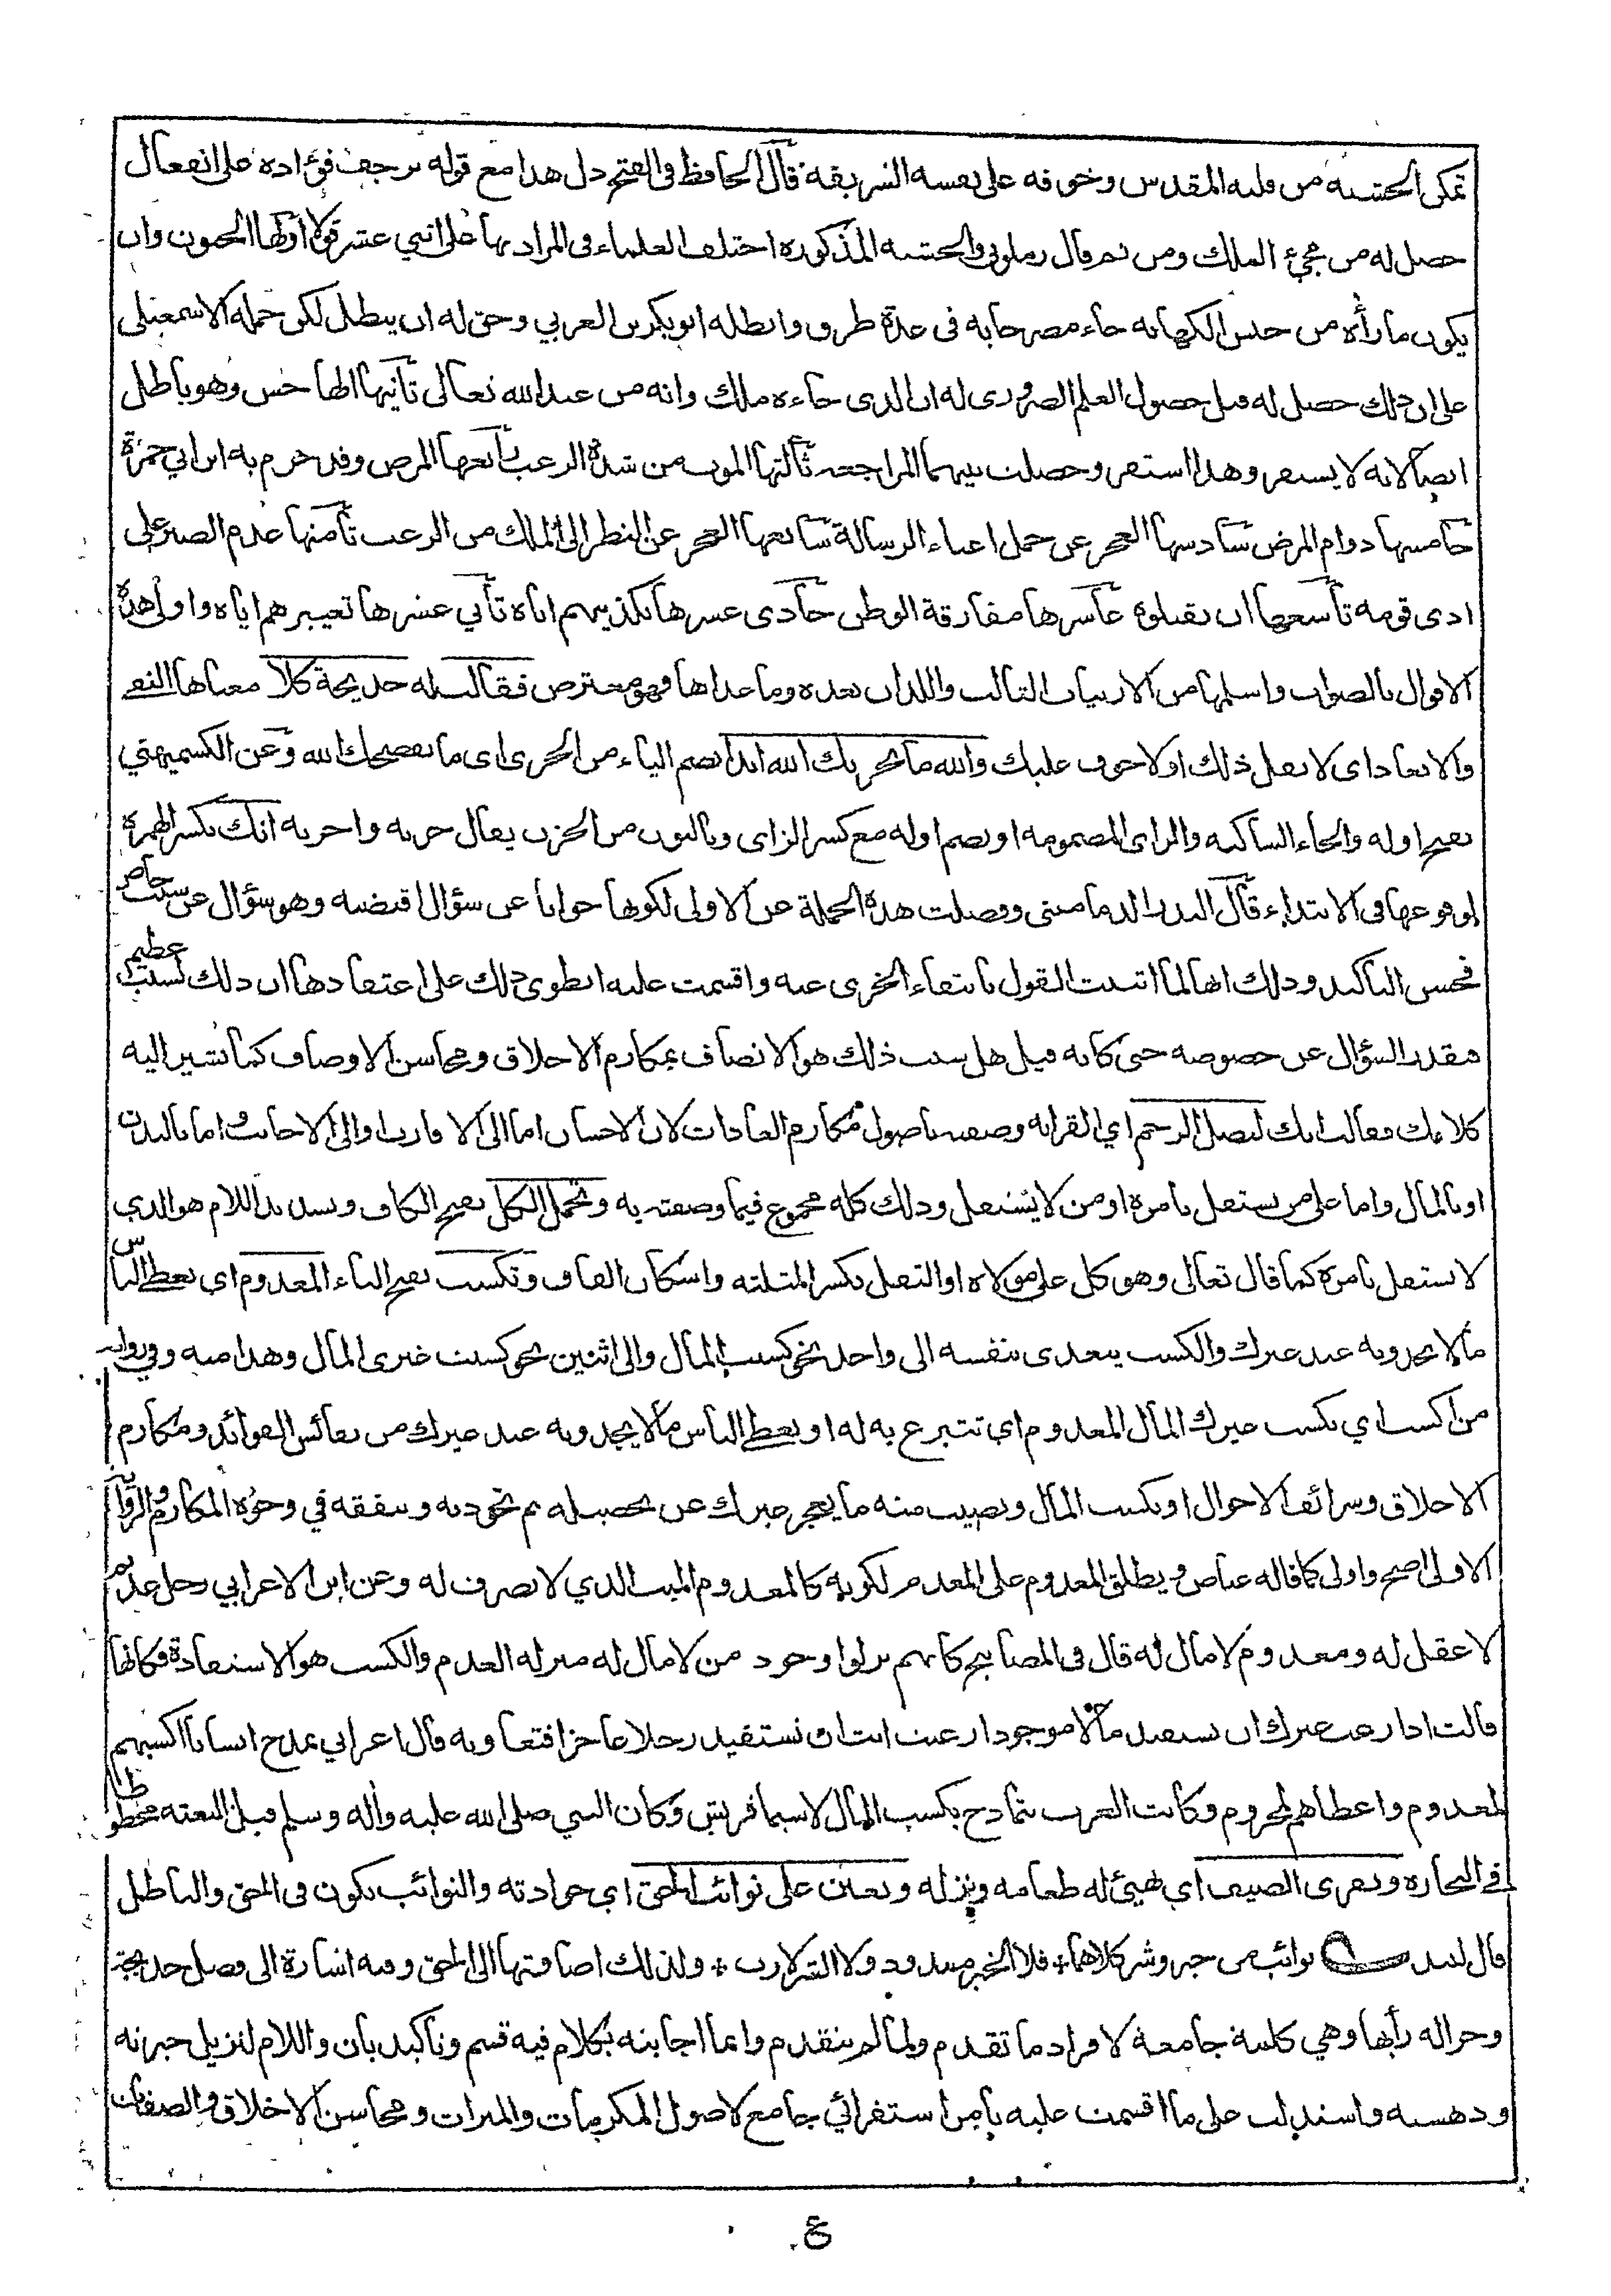 تمكن الخشية من قلبه المقدس وخوفه على نفسه الشريفة قال الحافظ في الفتح دل هذا مع قوله يرجف فؤاده على انفعال
حصل له من مجيء الملك ومن ثم قال زملوني والخشية المذكورة اختلف العلماء في المراد بها على اثني عشر قولا اولها الجنون وان
يكون ما رأه من جنس الكهانة جاء مصرحا به في عدة طرق وابطله ابو بكر بن العربي وحق له ان يبطل لكن حمله الاسمعيلي
على ان ذلك حصل له قبل حصول العلم الضروري له ان الذي جاءه ملك وانه من عند الله تعالى ثانيها الهاجس وهو باطل
ايضا لانه لا يستقر وهذا استقر وحصلت بينهما المراجعة ثالثها الموت من شدة الرعب رابعها المرض وقد جزم به ابن ابي جمرة
خامسها دوام المرض سادسها العجز عن حمل اعباء الرسالة سابعها العجز عن النظر الى الملك من الرعب ثامنها عدم الصبر على
اذى قومه تاسعها ان يقتلوه عاشرها مفارقة الوطن حادي عشرها تكذيبهم اياه ثاني عشرها تعييرهم اياه واولى هذه
الاقوال بالصواب واسلمها من الارتياب الثالث واللذان بعده وما عداها فهو معترض فقالت له خديجة كلا معناها النفي
والابعاد اي لا تقل ذلك او لا خوف عليك والله ما يخزيك الله ابدا بضم الياء من الخزي اي ما يفضحك الله وعن الكشميهني
بفتح اوله والحاء الساكنة والزاي المضمومة او بضم اوله مع كسر الزاي وبالنون من الحزن يقال حزنه واحزنه انك بكسر الهمزة
لوقوعها في الابتداء قال البدر الدماميني وفصلت هذه الجملة عن الاولى لكونها جوابا عن سؤال اقتضته وهو سؤال عن سبب خاص
فحسن التأكيد وذلك انها لما اثبتت القول بانتفاء الخزي عنه واقسمت عليه انطوى ذلك على اعتقادها ان ذلك لسبب عظيم
فيقدر السؤال عن خصوصه حتى كانه قيل هل سبب ذلك هو الاتصاف بمكارم الاخلاق ومحاسن الاوصاف كما يشير اليه
كلامك فقالت انك لتصل الرحم اي القرابة وصفته باصول مكارم العادات لان الاحسان اما الى الاقارب او الى الاجانب واما بالبدن
او بالمال واما على من يستقل بامره او من لا يستقل وذلك كله مجموع فيما وصفته به وتحمل الكل بفتح الكاف وتشديد اللام هو الذي
لا يستقل بامره كما قال تعالى وهو كل على مولاه او الثقل بكسر المثلثة واسكان القاف وتكسب بفتح التاء المعدوم اي تعطي الناس
ما لا يجدونه عند غيرك والكسب يتعدى بنفسه الى واحد نحو كسبت المال والى اثنين نحو كسبت غيري المال وهذا منه وفي رواية
من اكسب اي تكسب غيرك المال المعدوم اي تتبرع به له او تعطي الناس ما لا يجدونه عند غيرك من نفائس الفوائد ومكارم
الاخلاق وشرائف الاحوال او تكسب المال وتصيب منه ما يعجز غيرك عن تحصيله ثم تجود به وتنفقه في وجوه المكارم والرواية
الاولى اصح واولى كما قاله عياض ويطلق المعدوم على المعدم لكونه كالمعدوم الميت الذي لا تصرف له وعن ابن الاعرابي رجل عديم
لا عقل له ومعدوم لا مال له قال في المصابيح كانهم نزلوا وجود من لا مال له منزلة العدم والكسب هو الاستفادة فكانها
قالت اذا رغب غيرك ان يستفيد مالا موجودا رغبت انت ان تستفيد رجلا عاجزا فتعاونه قال اعرابي يمدح انسانا اكسبهم
لمعدوم واعطاهم لمحروم وكانت العرب تتمادح بكسب المال لا سيما قريش وكان النبي صلى الله عليه وآله وسلم قبل البعثة محظوظا
في التجارة وتقري الضيف اي تهيئ له طعامه ونزله وتعين على نوائب الحق اي حوادثه والنوائب تكون في الحق والباطل
قال لبيد نوائب من خير وشر كلاهما * فلا الخير ممدود ولا الشر لازب * ولذلك اضافتها الى الحق وفيه اشارة الى فضل خديجة
وجزالة رأيها وهي كلمة جامعة لافراد ما تقدم ولما لم يتقدم وانما اجابته بكلام فيه قسم وتأكيد بأن واللام لتزيل حيرته
ودهشته واستدلت على ما اقسمت عليه بأمر استقرائي جامع لاصول المكرمات والمبرات ومحاسن الاخلاق والصفات
ع